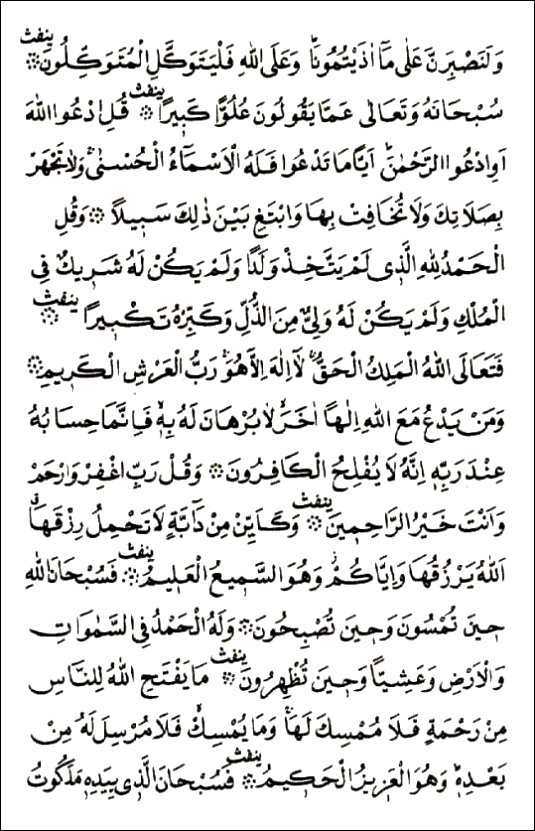 وَلَنَصْبِرَنَّ عَلٰى مَٓا اٰذَيْتُمُونَاۜ وَعَلَى اللهِ فَلْيَتَوَكَّلِ الْمُتَوَكِّلُونَ ۞ ينفث
سُبْحَانَهُ وَتَعَالٰى عَمَّا يَقُولُونَ عُلُوًّا كَبِيرًا ۞ ينفث قُلِ ادْعُوا اللهَ
اَوِ ادْعُوا الرَّحْمٰنَۜ اَيًّا مَا تَدْعُوا فَلَهُ الْاَسْمَٓاءُ الْحُسْنٰىۚ وَلَا تَجْهَرْ
بِصَلَاتِكَ وَلَا تُخَافِتْ بِهَا وَابْتَغِ بَيْنَ ذٰلِكَ سَبِيلًا ۞ وَقُلِ
الْحَمْدُ لِلهِ الَّذِى لَمْ يَتَّخِذْ وَلَدًا وَلَمْ يَكُنْ لَهُ شَرِيكٌ فِى
الْمُلْكِ وَلَمْ يَكُنْ لَهُ وَلِىٌّ مِنَ الذُّلِّ وَكَبِّرْهُ تَكْبِيرًا ۞ ينفث
فَتَعَالَى اللهُ الْمَلِكُ الْحَقُّۚ لَٓا اِلٰهَ اِلَّا هُوَۚ رَبُّ الْعَرْشِ الْكَرِيمِ ۞
وَمَنْ يَدْعُ مَعَ اللهِ اِلٰهًا اٰخَرَۙ لَا بُرْهَانَ لَهُ بِهِۙ فَاِنَّمَا حِسَابُهُ
عِنْدَ رَبِّهِ اِنَّهُ لَا يُفْلِحُ الْكَافِرُونَ ۞ وَقُلْ رَبِّ اغْفِرْ وَارْحَمْ
وَاَنْتَ خَيْرُ الرَّاحِمِينَ ۞ ينفث وَكَاَيِّنْ مِنْ دَٓابَّةٍ لَا تَحْمِلُ رِزْقَهَاۗ
اَللهُ يَرْزُقُهَا وَاِيَّاكُمْۘ وَهُوَ السَّمِيعُ الْعَلِيمُ ۞ ينفث فَسُبْحَانَ اللهِ
حِينَ تُمْسُونَ وَحِينَ تُصْبِحُونَ ۞ وَلَهُ الْحَمْدُ فِى السَّمٰوَاتِ
وَالْاَرْضِ وَعَشِيًّا وَحِينَ تُظْهِرُونَ ۞ ينفث مَا يَفْتَحِ اللهُ لِلنَّاسِ
مِنْ رَحْمَةٍ فَلَا مُمْسِكَ لَهَاۚ وَمَا يُمْسِكْۙ فَلَا مُرْسِلَ لَهُ مِنْ
بَعْدِهِۜ وَهُوَ الْعَزِيزُ الْحَكِيمُ ۞ ينفث فَسُبْحَانَ الَّذِى بِيَدِهِ مَلَكُوتُ